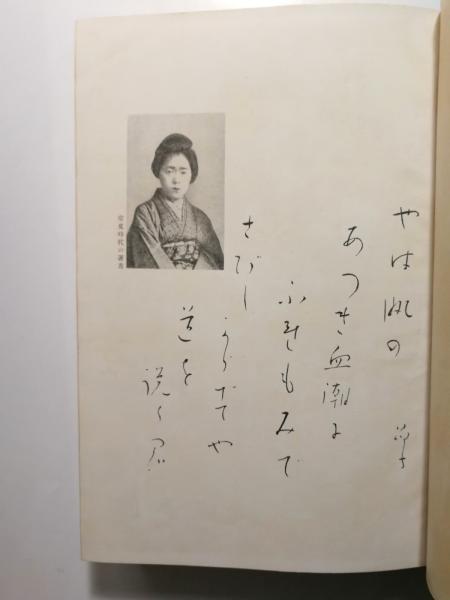 やは肌の
晶子
あつき血潮に
ふれもみで
さびし
からずや
道を
説く君
時代の著者